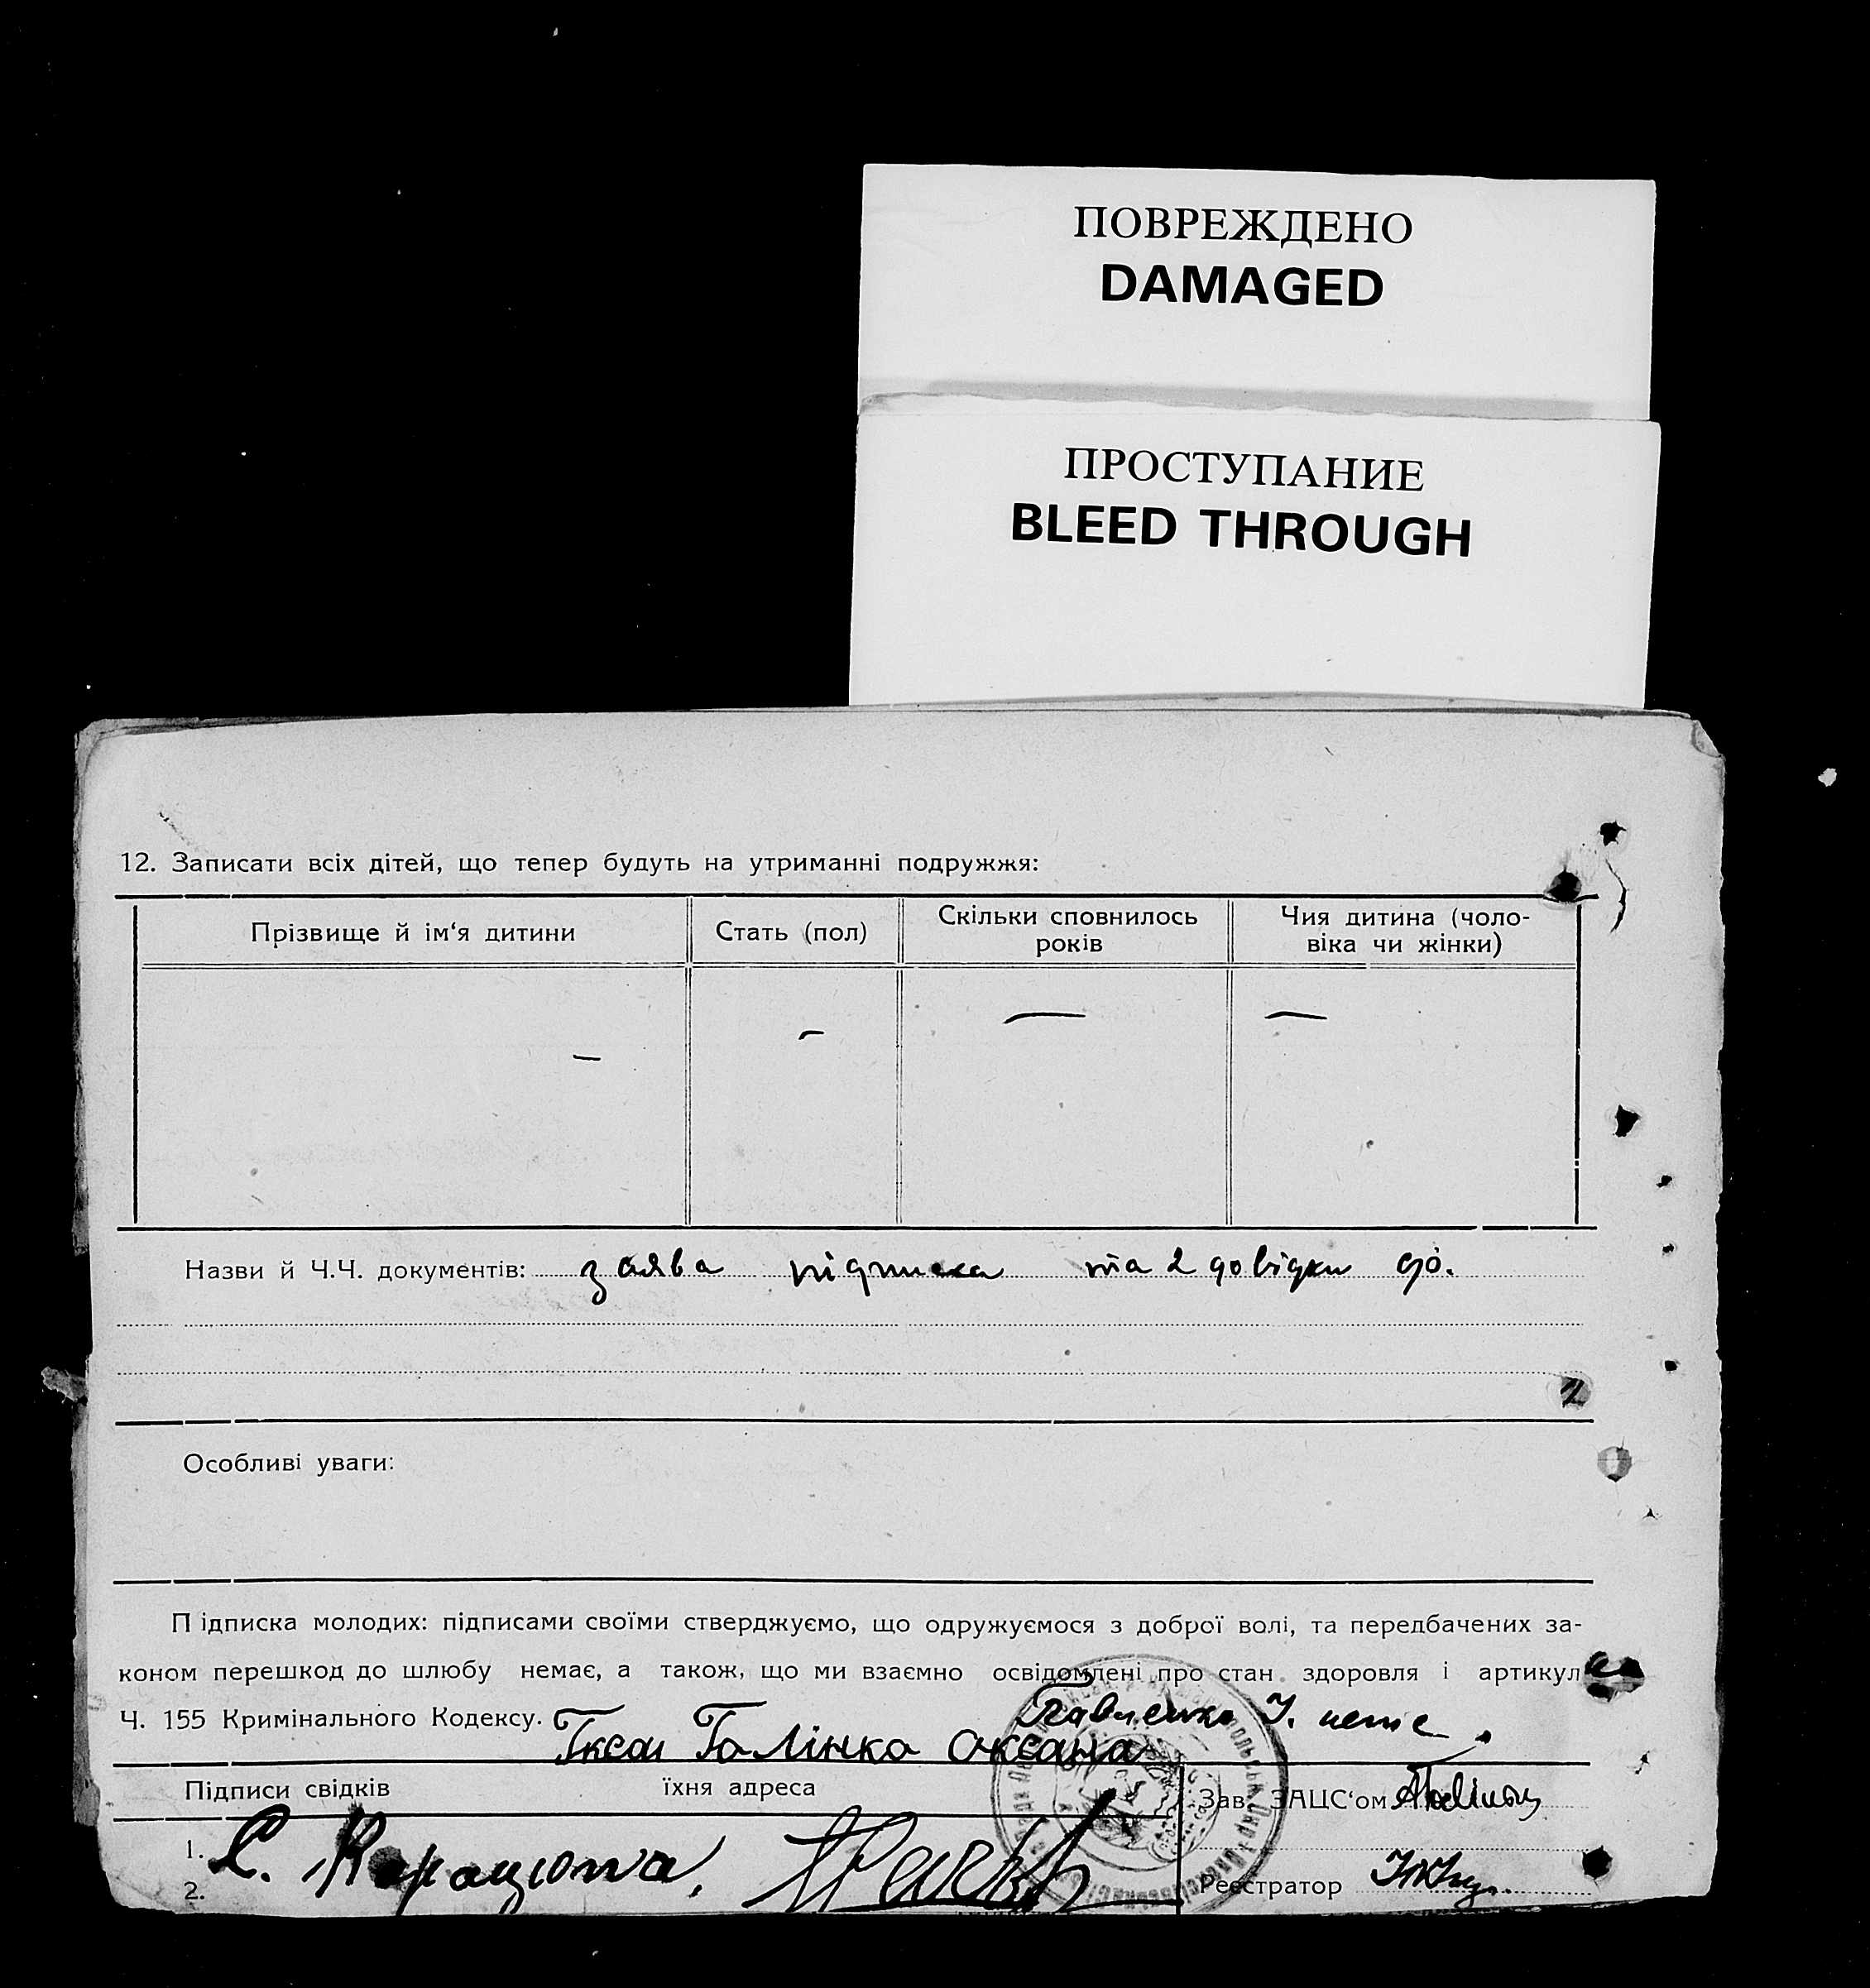 ПОВРЕЖДЕНО
DAMAGED
ПРОСТУПАНИЕ
BLEED THROUGH
12. Записати всіх дітей, що тепер будуть на утриманні подружжя:
Прізвище й ім‘я дитини Стать (пол) Скільки сповнилось років Чия дитина (чоловіка чи жінки)
— — — —
Назви й Ч.Ч. документів: заява підписка та 2 довідки
Особливі уваги:
Підписка молодих: підписами своїми стверджуємо, що одружуємося з доброї волі, та передбачених за-
коном перешкод до шлюбу немає, а також, що ми взаємно освідомлені про стан здоровля і артикул
Ч. 155 Кримінального Кодексу. Павленко
Оксана
Підписи свідків їхня адреса
Зав. ЗАЦС‘ом
1.
2.
Реєстратор